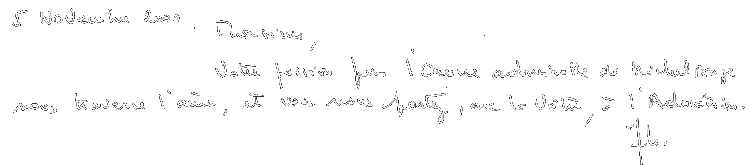 5 Novembre 2001.
Monsieur,
Votre passion pour l'Oeuvre admirable de Michel Ange
nous traverse l'âme, et vous nous portez, avec la Vôtre, à l'Adoration.